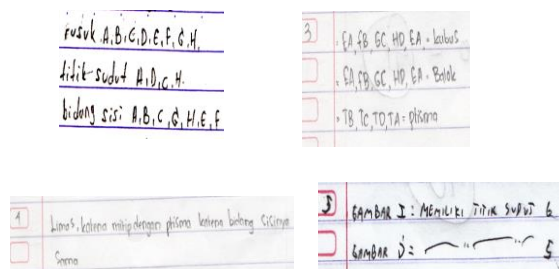 rusuk A,B,C,D,E,F,G,H.
titik sudut A,D,C,H.
bidang sisi A,B,C,G,H,E,F
3
• EA, FB, GC, HD, EA = kubus
• EA, FB, GC, HD, EA = Balok
• TB, TC, TD, TA = plisma
4
Limas, karena mirip dengan plisma karena bidang sisinya
Sama
5
GAMBAR I : MEMILIKI TITIK SUDUT 6
GAMBAR j : 5